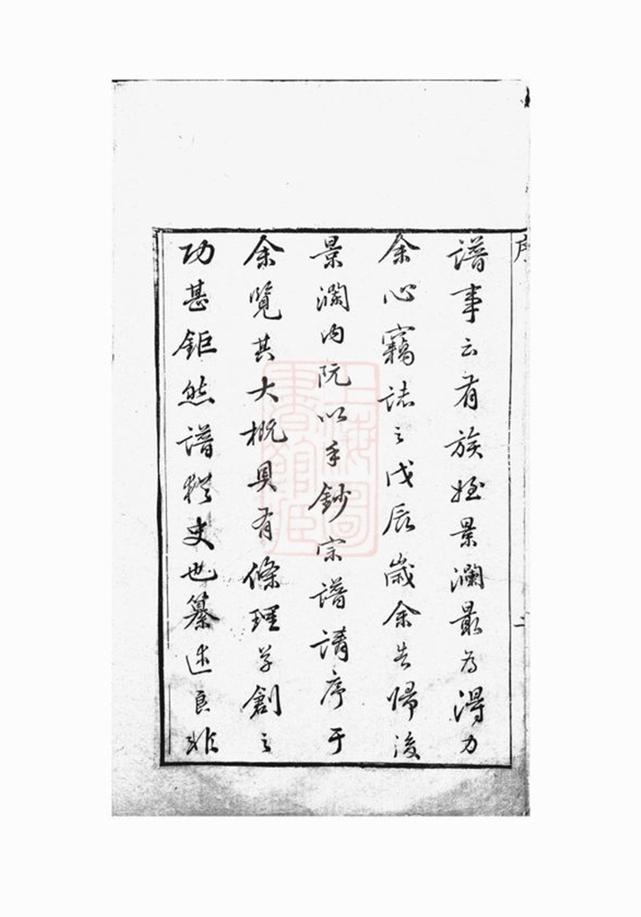 譜事云有族姪景瀾最為得力
余心竊誌之戊辰歲余告歸後
景瀾內阮以手鈔宗譜請序于
余覽其大概具有條理草創之
功甚鉅然譜猶史也纂述良非
序
一
上海圖書館藏